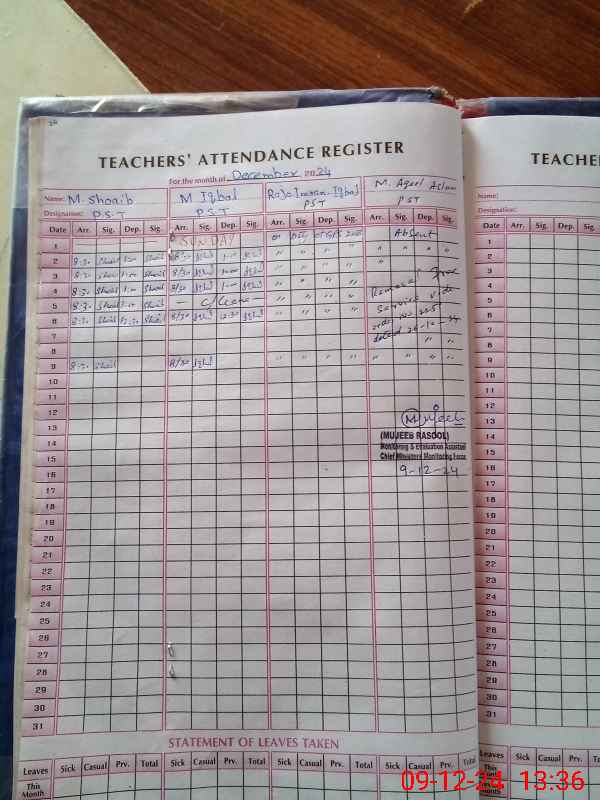 TEACHERS' ATTENDANCE REGISTER
For the month of December 2024
Name: M. Shoaib M Iqbal Raja Imran Iqbal M. Aqeel Aslam
Designation: P.S.T PST PST PST
Date Arr. Sig. Dep. Sig. Arr. Sig. Dep. Sig. Arr. Sig. Dep. Sig. Arr. Sig. Dep. Sig.
1 SUNDAY Absent
2 8:30 Shoaib 1:00 Shoaib 8/30 Iqbal 1:00 Iqbal " " " " " " " "
3 8:30 Shoaib 1:00 Shoaib 8/30 Iqbal 1:00 Iqbal " " " " "
4 8:30 Shoaib 1:00 Shoaib 8/30 Iqbal 1:00 Iqbal " " " " Removal from
5 8:30 Shoaib 1:00 Shoaib — C/Leave — " " " " Service vide
6 8:30 Shoaib 12:30 Shoaib 8/30 Iqbal 12:30 Iqbal " " " "
7 dated
8 " "
9 8:30 Shoaib 8/30 Iqbal " " " " " " " "
10
11
12
13 Mujeeb
14 (MUJEEB RASOOL)
15 Monitoring & Evaluation Assistant
Chief Ministers Monitoring Force
16 9-12-24
17
18
19
20
21
22
23
24
25
26
27
28
29
30
31
STATEMENT OF LEAVES TAKEN
Leaves Sick Casual Prv. Total Sick Casual Prv. Total Sick Casual Prv. Total Sick Casual Prv. Total
This
Month
TEACHE
Name:
Designation:
Date Arr. Sig. Dep. Sig.
1
2
3
4
5
6
7
8
9
10
11
12
13
14
15
16
17
18
19
20
21
22
23
24
25
26
27
28
29
30
31
Leaves Sick Casual Prv. Total
This
Month
09-12-24 13:36